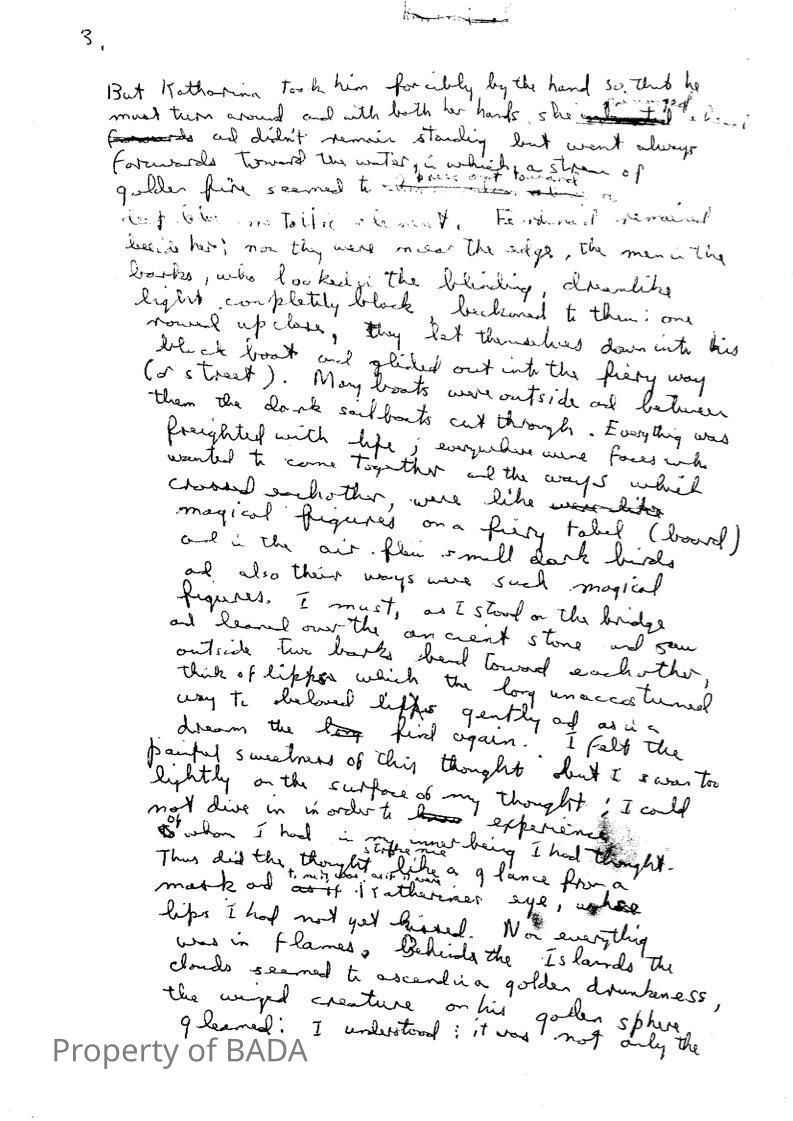 3.
But Katharina took him forcibly by the hand so that he
must turn around and with both her hands she
forwards and didn't remain standing but went always
forwards toward the water, in which a stream of
golden fire seemed to press out toward a
deep blue metallic element. Ferdinand remained
beside her; now they were near the edge, the men in the
barks, who looked in the blinding, dreamlike
light completily black, beckoned to them: one
rowed up close, they let themselves down into his
black boat and glided out into the fiery way
(or street). Many boats were outside and between
them the dark sailboats cut through. Everything was
freighted with life; everywhere were faces who
wanted to come together and the ways which
crossed eachother, were like were like
magical figures on a fiery tabel (board)
and in the air flew small dark birds
and also their ways were such magical
figures. I must, as I stood on the bridge
and leaned over the ancient stone and saw
outside two barks bend toward eachother,
think of lipps which the long unaccostumed
way to beloved lipps gently and as in a
dream the find again. I felt the
painful sweetness of this thought but I swam too
lightly on the surface of my thought; I could
not dive in in order to experience
of whom I had in my inner being I had thought.
Thus did the thought strike me like a glance from a
mask and as if to me it was as if it were Katharina's eye, whose
lips I had not yet kissed. Now everything
was in flames. Behinds the Islands the
clouds seemed to ascend in a golden drunkeness,
the winged creature on his golden sphere
gleamed: I understood: it was not only the
Property of BADA